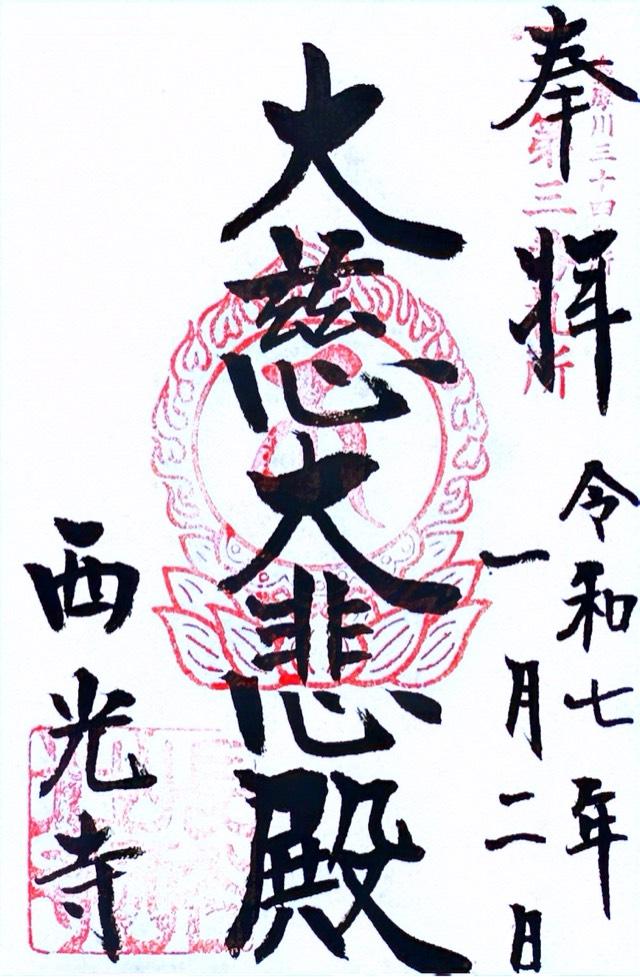 奉拝
川三十四
第三
所
令和七年
一月二日
大慈大悲殿
西光寺